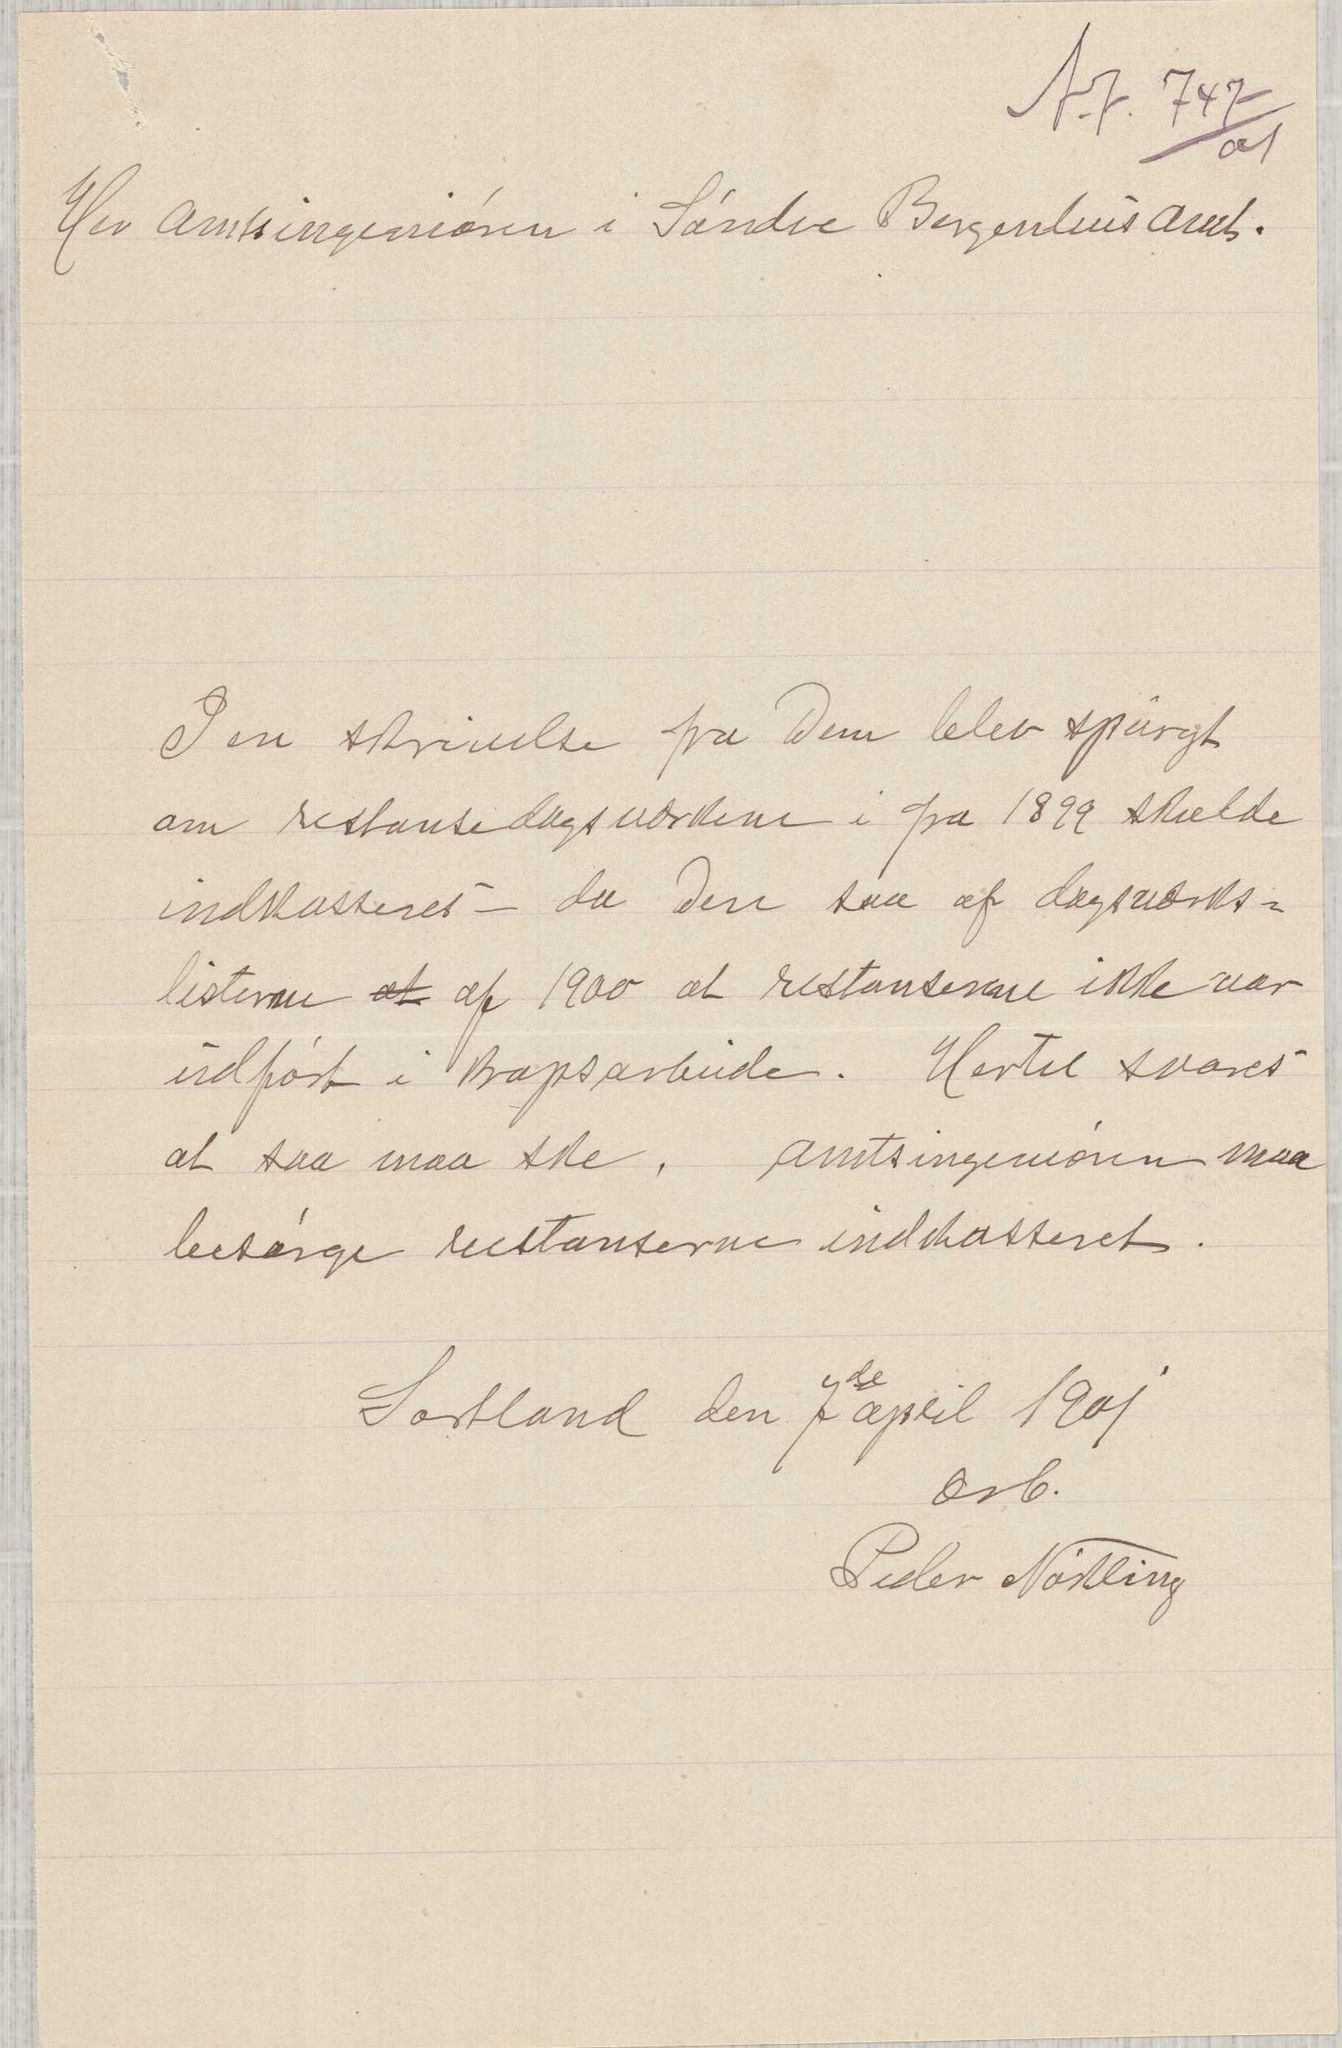 A.J. 747/01
Her Amtsingeniøren i Søndre Bergenhus Amt.
I en skrivelse fra Dem blev spurgt
om restansedagsværkene i fra 1899 skulde
indkasseres – da Den saa af dagsværks-
listerne at af 1900 at restanserne ikke var
udført i krapsarbeide. Hertil svares
at saa maa ske, Amtsingeniøren maa
besørge restanserne indkasseret.
Sortland den 7de april 1901
Ærb.
Peder Nøkling